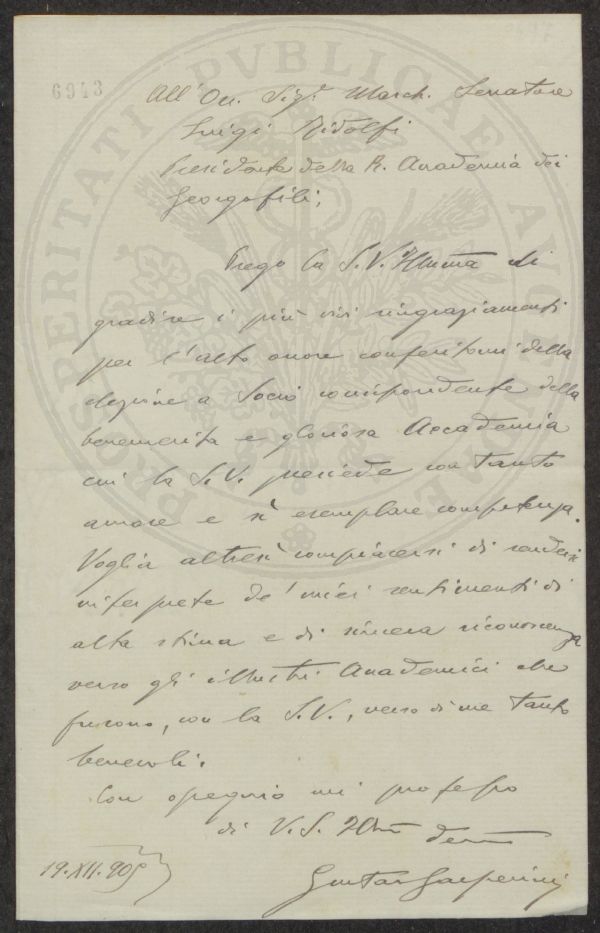 6943
All' On. Sigr. March. Senatore
Luigi Ridolfi
Presidente della R. Accademia dei
Georgofili;
Prego la S. V. Illma di
gradire i più vivi ringraziamenti
per l'alto onore conferitomi della
elezione a Socio corrispondente della
benemerita e gloriosa Accademia
cui la S. V. presiede con tanto
amore e sì esemplare competenza.
Voglia altresì compiacersi di rendersi
interprete de' miei sentimenti di
alta stima e di sincera riconoscenza
verso gli illustri Accademici che
furono, con la S. V., verso di me tanto
benevoli.
Con ossequio mi professo
di V. S. Illma
19. XII. 905
Gustavo Gasperini
PROSPERITATI PVBLICAE AVGENDAE